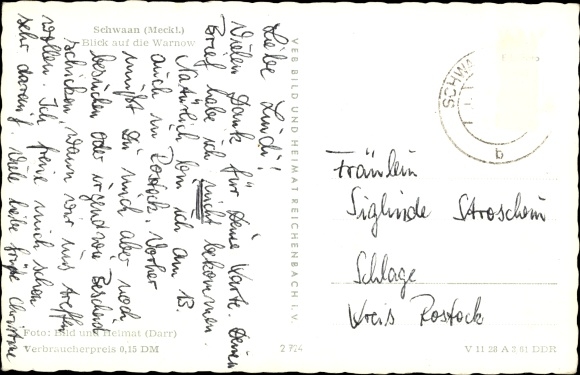 Schwaan (Meckl.)
Blick auf die Warnow
Liebe Lindi!
Vielen Dank für Deine Karte. Deinen
Brief habe ich nicht bekommen.
Natürlich kom ich am 13.
auch in Rostock. Vorher
mußt Du mich aber noch
besuchen oder irgendwie Bescheid
schicken, wann wir uns treffen
wollen. Ich freue mich schon
sehr darauf. Viele liebe Grüße Christine
VEB BILD UND HEIMAT REICHENBACH I. V.
SCHWAA
b
Fräulein
Siglinde Stroschein
Schlage
Kreis Rostock
Foto: Bild und Heimat (Darr)
Verbraucherpreis 0,15 DM
2 924
V 11 28 A 3 61 DDR